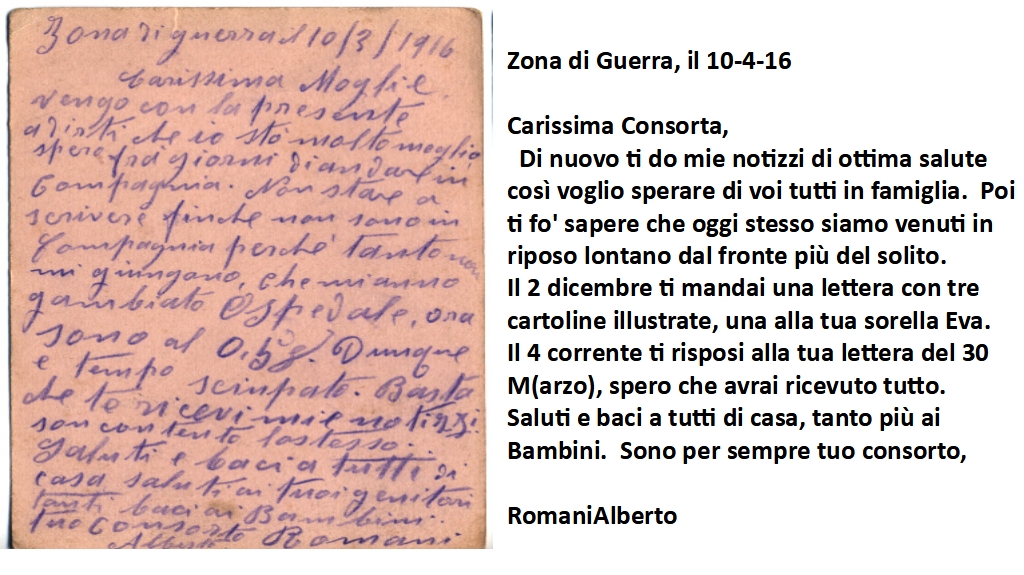 Zona di guerra il 10/3/1916
Carissima Moglie
vengo con la presente
a dirti che io sto molto meglio
spero frà giorni di andare in
Compagnia. Non stare a
scrivere finche non sono in
Compagnia perché tanto non
mi giungano, che mi anno
gambiato Ospedale, ora
sono al 0,58. Dunque
e tempo sciupato. Basta
che te ricevi mie notizzi.
son contento lostesso.
Saluti e baci a tutti di
casa saluti ai tuoi genitori
tanti baci ai Bambini.
tuo Consorto Romani
Alberto
Zona di Guerra, il 10-4-16
Carissima Consorta,
Di nuovo ti do mie notizzi di ottima salute
così voglio sperare di voi tutti in famiglia. Poi
ti fo' sapere che oggi stesso siamo venuti in
riposo lontano dal fronte più del solito.
Il 2 dicembre ti mandai una lettera con tre
cartoline illustrate, una alla tua sorella Eva.
Il 4 corrente ti risposi alla tua lettera del 30
M(arzo), spero che avrai ricevuto tutto.
Saluti e baci a tutti di casa, tanto più ai
Bambini. Sono per sempre tuo consorto,
RomaniAlberto